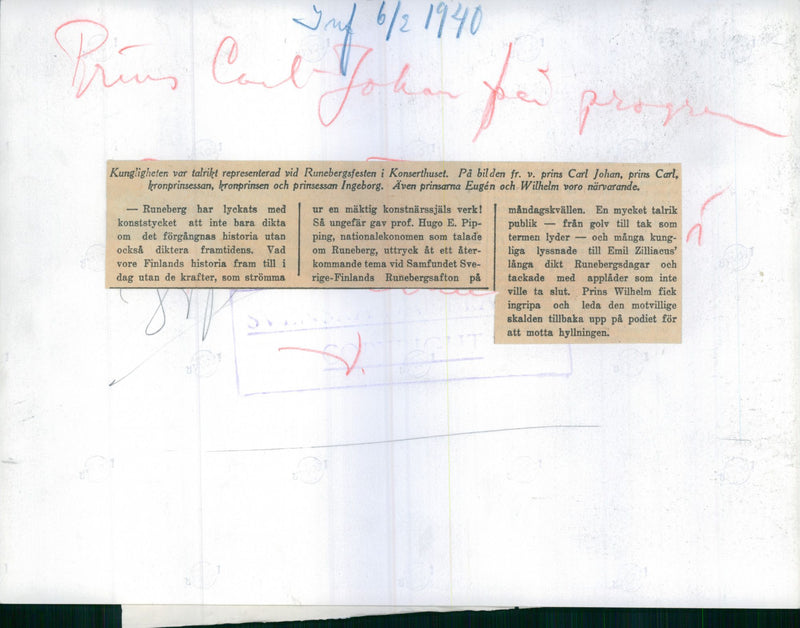 Inf 6/2 1940
Prins Carl Johan på progra
Kungligheten var talrikt representerad vid Runebergsfesten i Konserthuset. På bilden fr. v. prins Carl Johan, prins Carl,
kronprinsessan, kronprinsen och prinsessan Ingeborg. Även prinsarna Eugén och Wilhelm voro närvarande.
— Runeberg har lyckats med
konststycket att inte bara dikta
om det förgångnas historia utan
också diktera framtidens. Vad
vore Finlands historia fram till i
dag utan de krafter, som strömma
ur en mäktig konstnärssjäls verk!
Så ungefär gav prof. Hugo E. Pip-
ping, nationalekonomen som talade
om Runeberg, uttryck åt ett åter-
kommande tema vid Samfundet Sve-
rige-Finlands Runebergsafton på
måndagskvällen. En mycket talrik
publik — från golv till tak som
termen lyder — och många kung-
liga lyssnade till Emil Zilliacus'
långa dikt Runebergsdagar och
tackade med applåder som inte
ville ta slut. Prins Wilhelm fick
ingripa och leda den motvillige
skalden tillbaka upp på podiet för
att motta hyllningen.